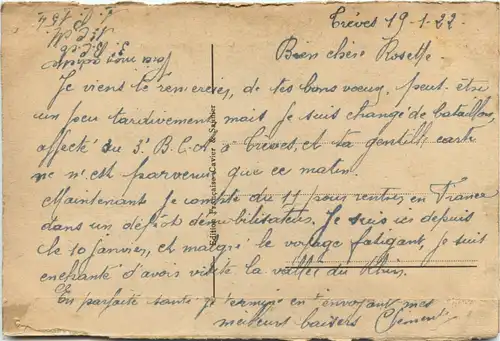 Trèves 19-1-22
Bien chère Rosette
Je viens te remercier, de tes bons voeux, peut être
un peu tardivement mais je suis changé de bataillon,
affecté au 3e B.C.A à Trèves, et ta gentille carte
ne m'est parvenue que ce matin.
Maintenant je compte du 17 pour rentrer en France
dans un dépôt démobilisateur. Je suis ici depuis
le 10 janvier, et malgré le voyage fatigant, je suis
enchanté d'avoir visité la vallée du Rhin.
En parfaite santé je termine en t'envoyant mes
meilleurs baisers Clément
Edition Française Cavier &